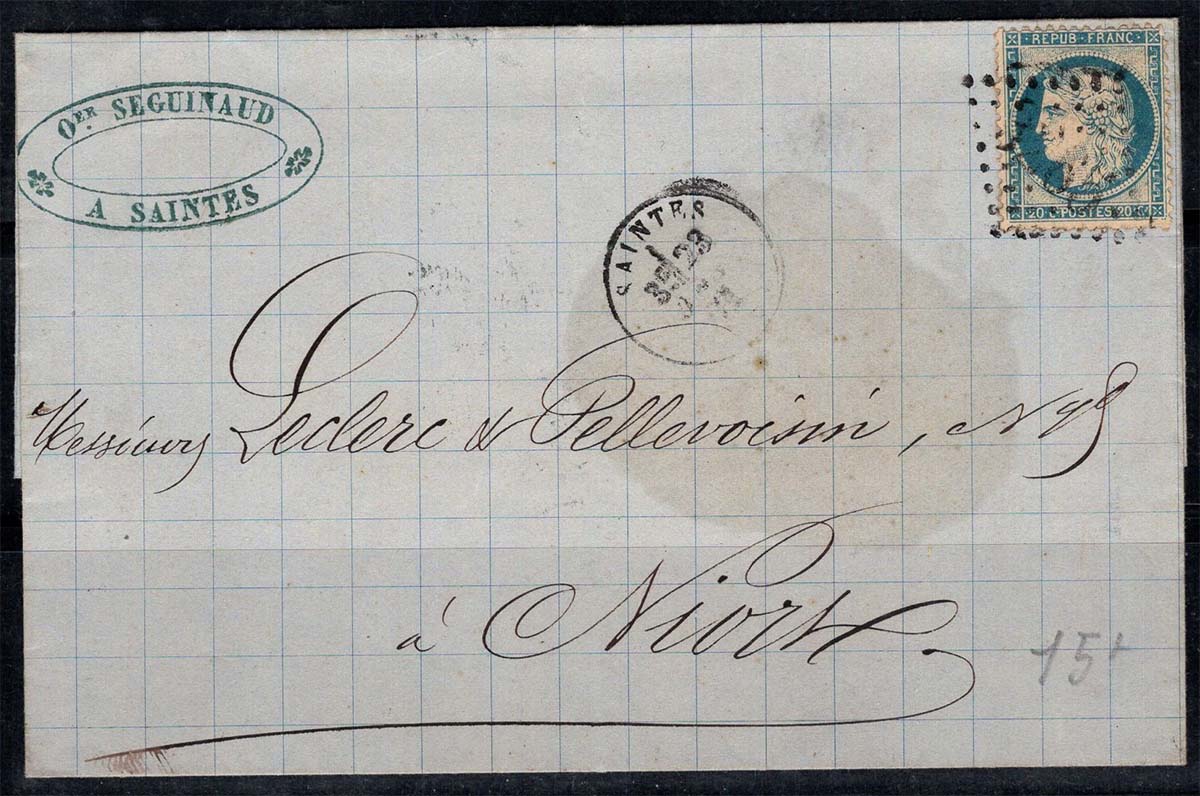 OER SEGUINAUD
A SAINTES
REPUB · FRANC ·
20 c POSTES 20 c
SAINTES
23
Messieurs Leclerc & Pellevoisin, Nts
à Niort
15